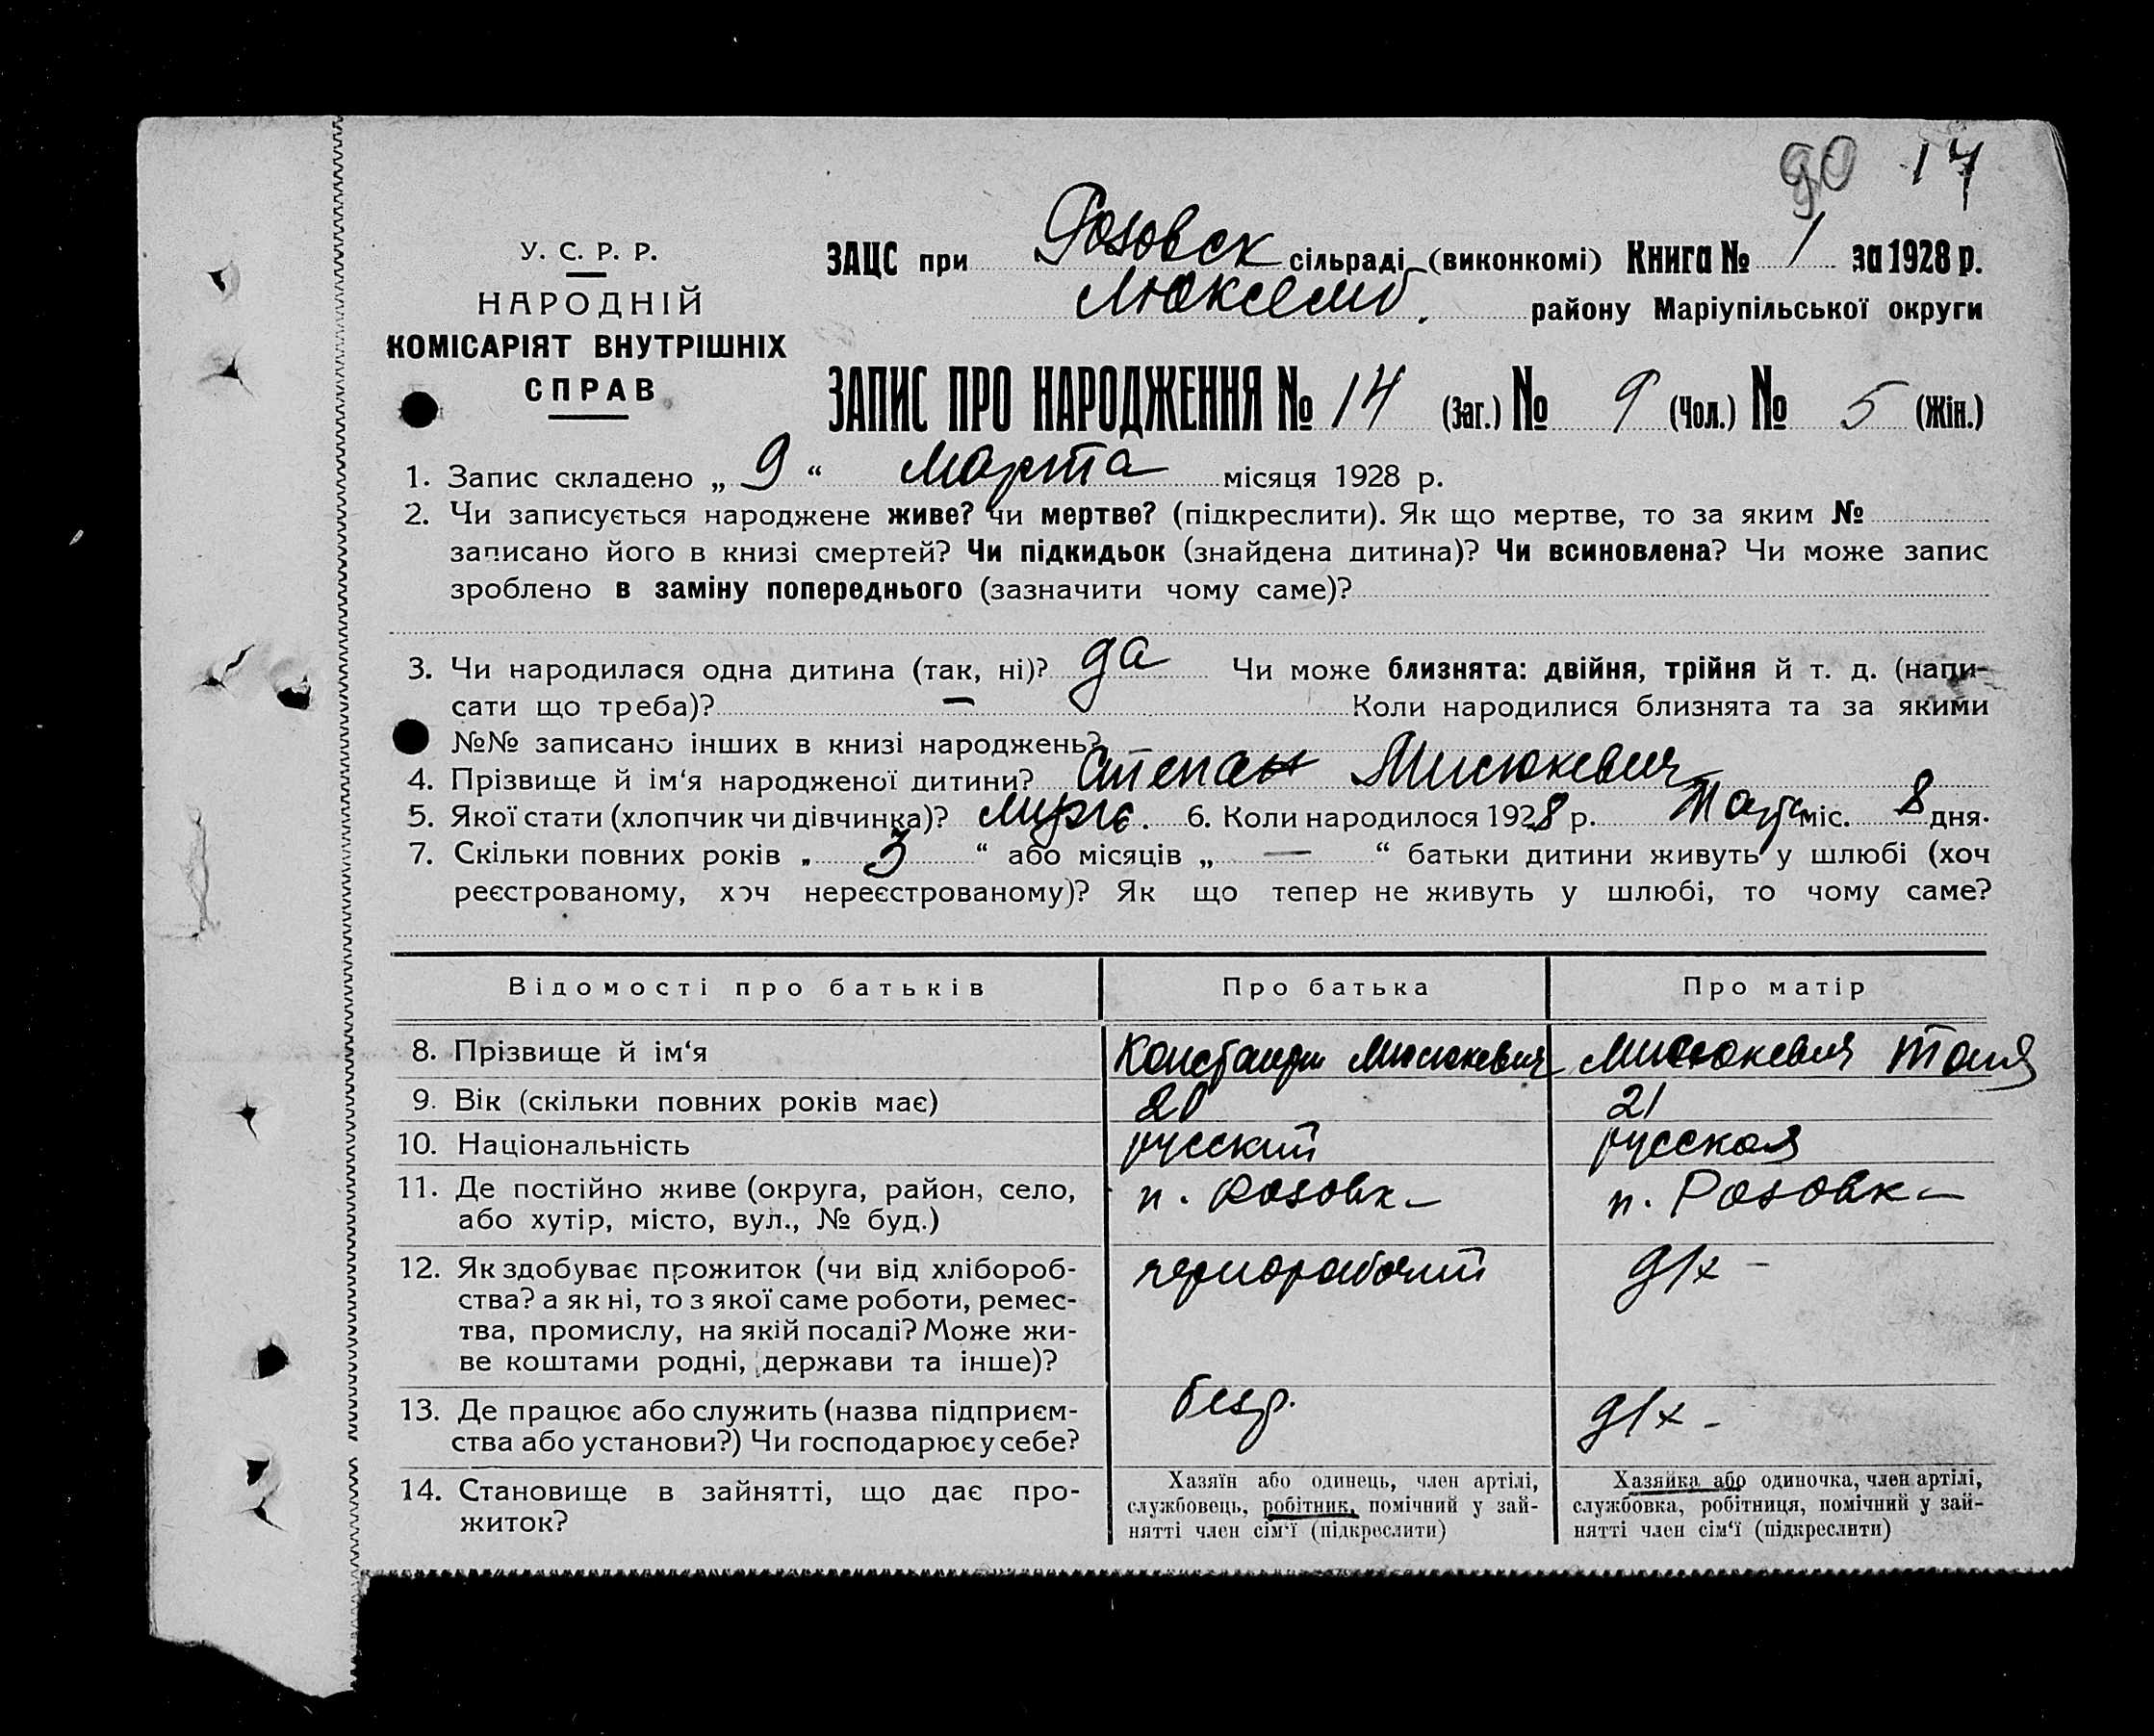 до 14
У. С. Р. Р.
НАРОДНІЙ
КОМІСАРІЯТ ВНУТРІШНІХ
СПРАВ
ЗАЦС при Розовск сільраді (виконкомі) Книга № 1 за 1928 р.
Люксемб. району Маріупільської округи
ЗАПИС ПРО НАРОДЖЕННЯ № 14 (Заг.) № 9 (Чол.) № 5 (Жін.)
1. Запис складено „ 9 “ Марта місяця 1928 р.
2. Чи записується народжене живе? чи мертве? (підкреслити). Як що мертве, то за яким №
записано його в книзі смертей? Чи підкидьок (знайдена дитина)? Чи всиновлена? Чи може запис
зроблено в заміну попереднього (зазначити чому саме)?
3. Чи народилася одна дитина (так, ні)? да Чи може близнята: двійня, трійня й т. д. (напи-
сати що треба)? — Коли народилися близнята та за якими
№№ записано інших в книзі народжень? —
4. Прізвище й ім‘я народженої дитини? Степан Мисюкевич
5. Якої стати (хлопчик чи дівчинка)? 6. Коли народилося 1928 р. Март міс. 8 дня.
7. Скільки повних років „ 3 “ або місяців „ — “ батьки дитини живуть у шлюбі (хоч
реєстрованому, хоч нереєстрованому)? Як що тепер не живуть у шлюбі, то чому саме?
Відомості про батьків Про батька Про матір
8. Прізвище й ім‘я Константин Мисюкевич Мисюкевич Таня
9. Вік (скільки повних років має) 20 21
10. Національність русский русская
11. Де постійно живе (округа, район, село, п. Розовк— п. Розовк—
або хутір, місто, вул., № буд.)
12. Як здобуває прожиток (чи від хлібороб- чернорабочий д/х —
ства? а як ні, то з якої саме роботи, ремес-
тва, промислу, на якій посаді? Може жи-
ве коштами родні, держави та інше)?
13. Де працює або служить (назва підприєм- безр. д/х -
ства або установи?) Чи господарює у себе?
14. Становище в зайнятті, що дає про-
житок?
Хазяїн або одинець, член артілі,
службовець, робітник, помічний у зай-
нятті член сім‘ї (підкреслити)
Хазяйка або одиночка, член артілі,
службовка, робітниця, помічний у зай-
нятті член сім‘ї (підкреслити)